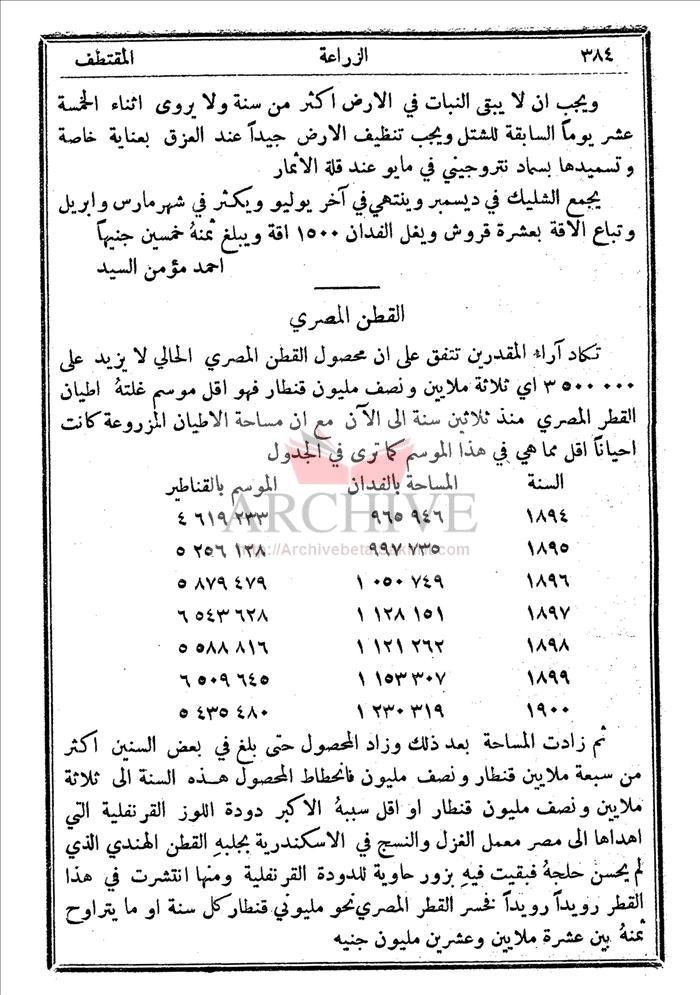 ٣٨٤ الزراعة المقتطف
ويجب ان لا يبقى النبات في الارض اكثر من سنة ولا يروى اثناء الخمسة
عشر يوماً السابقة للشتل ويجب تنظيف الارض جيداً عند العزق بعناية خاصة
وتسميدها بسماد نتروجيني في مايو عند قلة الاثمار
يجمع الشليك في ديسمبر وينتهي في آخر يوليو ويكثر في شهر مارس وابريل
وتباع الاقة بعشرة قروش ويغل الفدان ١٥٠٠ اقة ويبلغ ثمنهُ خمسين جنيهاً
احمد مؤمن السيد
القطن المصري
تكاد آراء المقدرين تتفق على ان محصول القطن المصري الحالي لا يزيد على
٣ ٥٠٠ ٠٠٠ اي ثلاثة ملايين ونصف مليون قنطار فهو اقل موسم غلتهُ اطيان
القطر المصري منذ ثلاثين سنة الى الآن مع ان مساحة الاطيان المزروعة كانت
احياناً اقل مما هي في هذا الموسم كما ترى في الجدول
السنة المساحة بالفدان الموسم بالقناطير
١٨٩٤ ٩٦٥ ٩٤٦ ٤ ٦١٩ ٢٣٣
ARCHIVE
١٨٩٥ ٩٩٧ ٧٣٥ ٥ ٢٥٦ ١٢٨
http://Archivebeta.Sakhrit.com
١٨٩٦ ١ ٠٥٠ ٧٤٩ ٥ ٨٧٩ ٤٧٩
١٨٩٧ ١ ١٢٨ ١٥١ ٦ ٥٤٣ ٦٢٨
١٨٩٨ ١ ١٢١ ٢٦٢ ٥ ٥٨٨ ٨١٦
١٨٩٩ ١ ١٥٣ ٣٠٧ ٦ ٥٠٩ ٦٤٥
١٩٠٠ ١ ٢٣٠ ٣١٩ ٥ ٤٣٥ ٤٨٠
ثم زادت المساحة بعد ذلك وزاد المحصول حتى بلغ في بعض السنين اكثر
من سبعة ملايين قنطار ونصف مليون فانحطاط المحصول هذه السنة الى ثلاثة
ملايين ونصف مليون قنطار او اقل سببهُ الاكبر دودة اللوز القرنفلية التي
اهداها الى مصر معمل الغزل والنسج في الاسكندرية بجلبهِ القطن الهندي الذي
لم يحسن حلجهُ فبقيت فيهِ بزور حاوية للدودة القرنفلية ومنها انتشرت في هذا
القطر رويداً رويداً فخسر القطر المصري نحو مليوني قنطار كل سنة او ما يتراوح
ثمنهُ بين عشرة ملايين وعشرين مليون جنيه